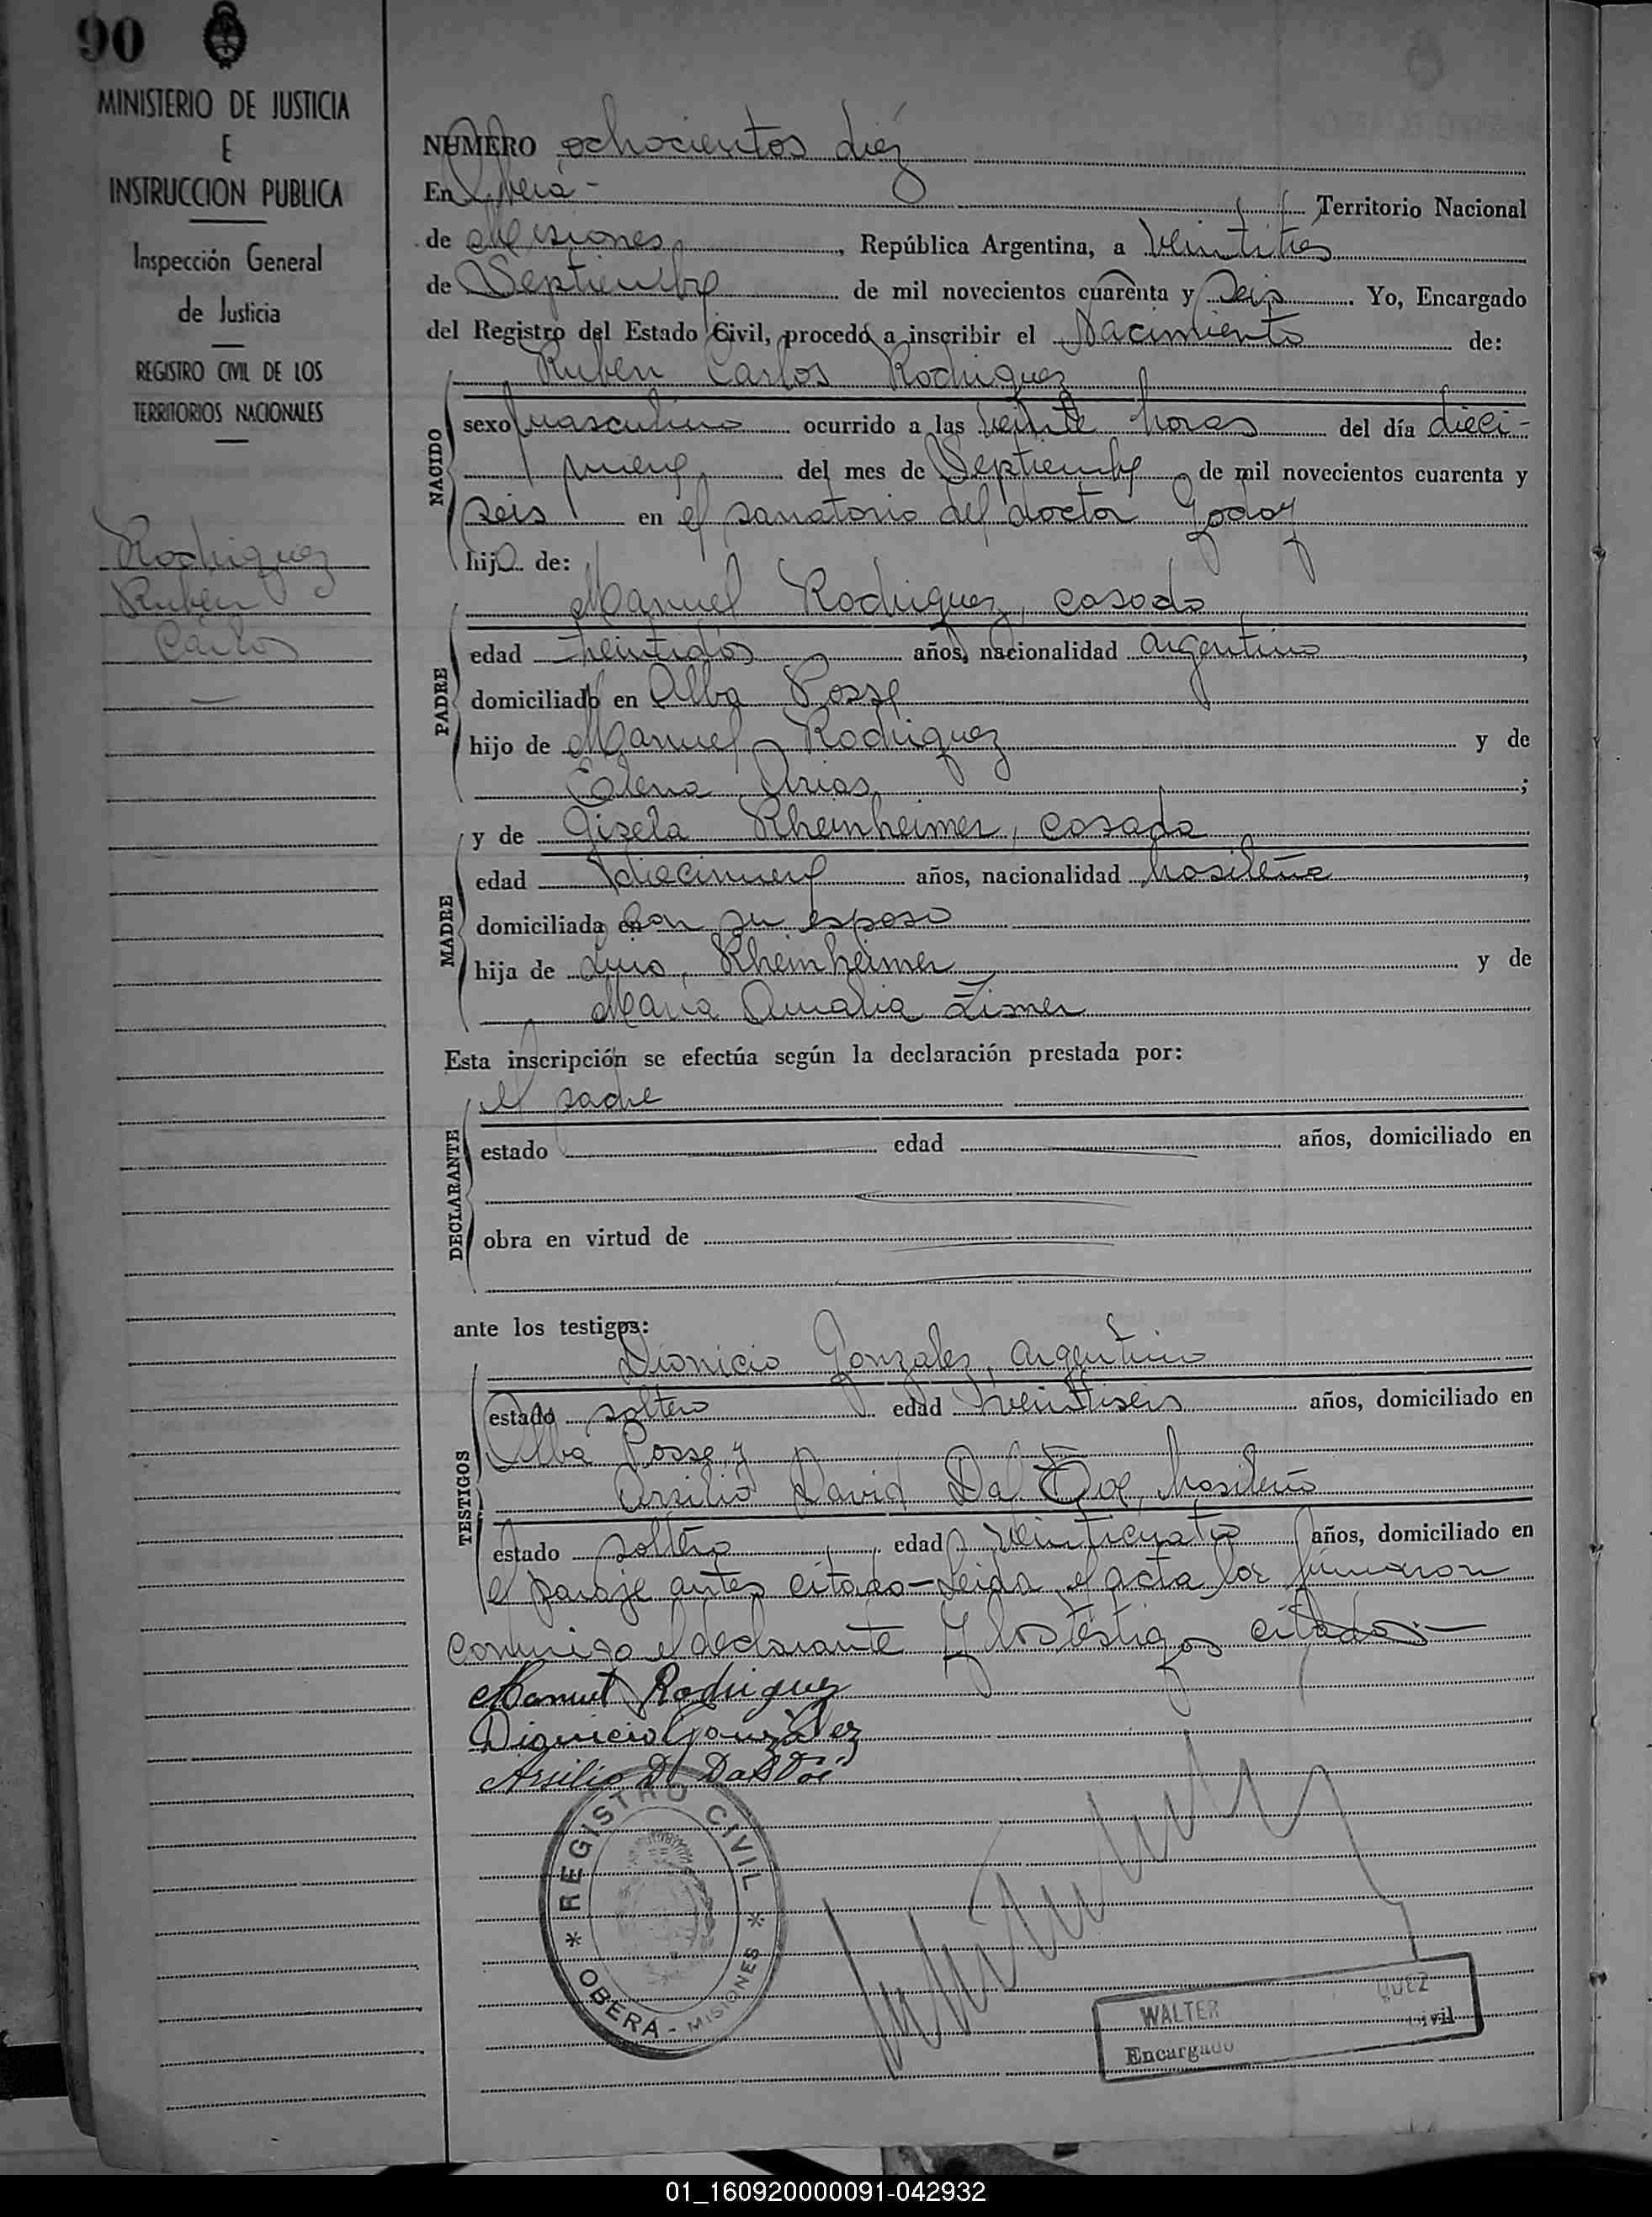 90
MINISTERIO DE JUSTICIA
E
INSTRUCCION PUBLICA
Inspección General
de Justicia
REGISTRO CIVIL DE LOS
TERRITORIOS NACIONALES
Rodriguez
Rubén
Carlos
NUMERO ochocientos diez
En Oberá - Territorio Nacional
de Misiones, República Argentina, a veintitres
de Septiembre de mil novecientos cuarenta y seis. Yo, Encargado
del Registro del Estado Civil, procedo a inscribir el Nacimiento de:
Ruben Carlos Rodriguez
NACIDO
sexo masculino ocurrido a las veinte horas del día dieci-
nueve del mes de Septiembre de mil novecientos cuarenta y
seis en el sanatorio del doctor Godoy
hijo de:
PADRE
Manuel Rodriguez, casado
edad años, nacionalidad argentino,
domiciliado en Alba Posse
hijo de Manuel Rodriguez y de
Elena Arias;
MADRE
y de Gisela Rheinheimer, casada
edad diecinueve años, nacionalidad brasileña,
domiciliada en con su esposo
hija de Luis Rheinheimer y de
Maria Amalia Zimer
Esta inscripción se efectúa según la declaración prestada por:
DECLARANTE
el padre
estado edad años, domiciliado en
obra en virtud de
ante los testigos:
TESTIGOS
Dionicio Gonzales, argentino
estado soltero edad veintiseis años, domiciliado en
Alba Posse, y
Arsilio David Dal Toe, brasileño
estado soltero edad veinticuatro años, domiciliado en
el paraje antes citado - Leida el acta la firmaron
conmigo el declarante y los testigos citados.-
Manuel Rodriguez
Dionicio González
Arsilio D. Dal Toé
REGISTRO CIVIL
OBERA - MISIONES
WALTER QUEZ
Encargado Civil
01_160920000091-042932